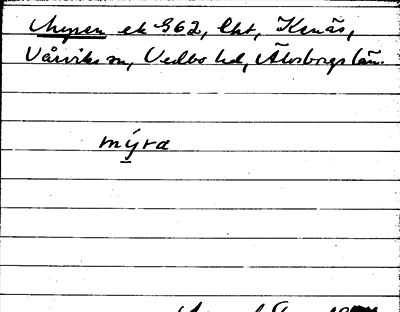 Myren ek 962, Cht, Kesnäs,
Vårviks sn, Vedbo hd, Älvsborgs län.
mýra